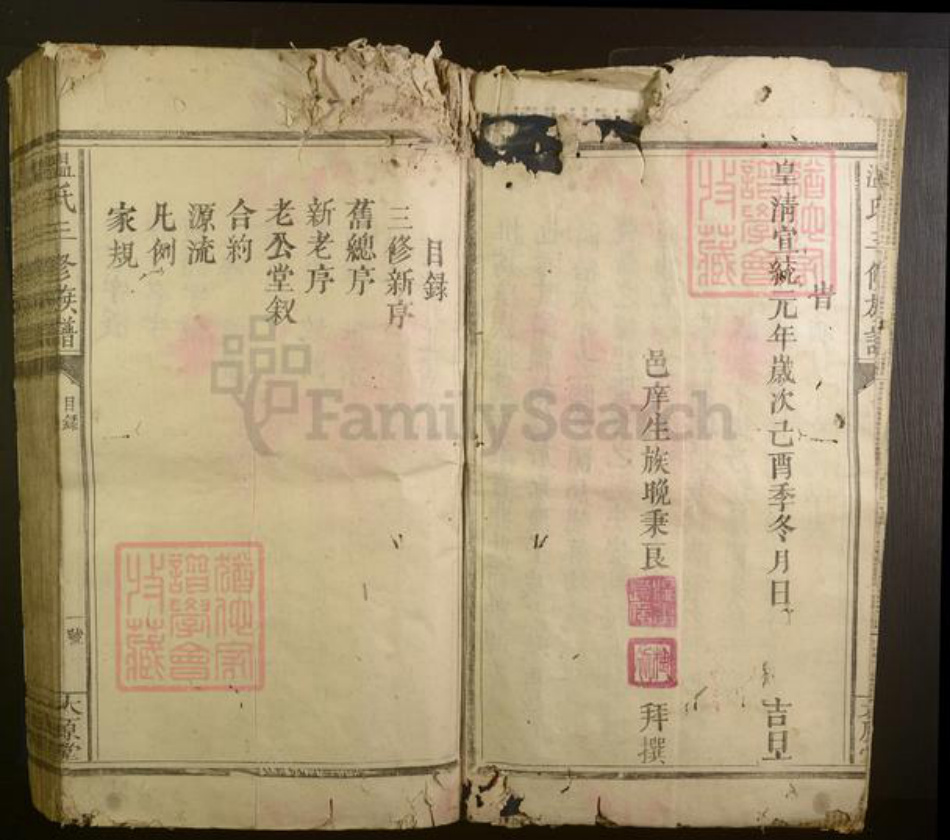 皇清宣統元年歲次己酉季冬月日 吉旦
邑庠生族晚秉良 拜撰
太原堂
目錄
三修新序
舊總序
新老序
老公堂叙
合約
源流
凡例
家規
溫氏三修族譜
目錄
一號
太原堂
猶他家譜學會收藏
猶他家譜學會收藏
FamilySearch